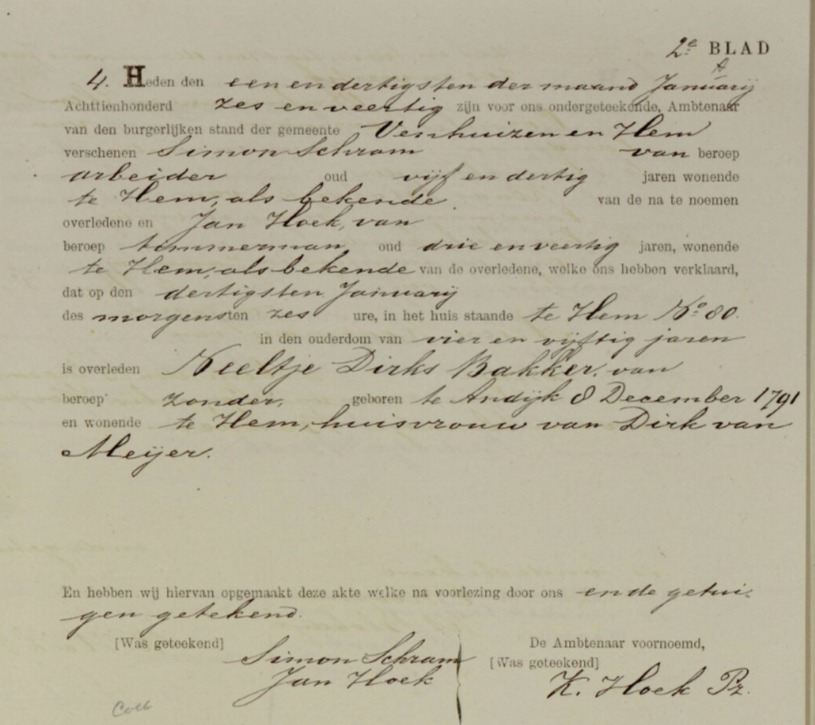 2e BLAD
4. Heden den een en dertigsten der maand Januarij
Achttienhonderd zes en veertig zijn voor ons ondergeteekende, Ambtenaar
van den burgerlijken stand der gemeente Venhuizen en Hem
verschenen Simon Schram van beroep
arbeider oud vijf en dertig jaren wonende
te Hem, als bekende van de na te noemen
overledene en Jan Hoek, van
beroep timmerman, oud drie en veertig jaren, wonende
te Hem, als bekende van de overledene, welke ons hebben verklaard,
dat op den dertigsten Januarij
des morgens ten zes ure, in het huis staande te Hem No 80.
in den ouderdom van vier en vijftig jaren
is overleden Neeltje Dirks Bakker, van
beroep zonder, geboren te Andijk 8 December 1791
en wonende te Hem, huisvrouw van Dirk van
Meijer.
En hebben wij hiervan opgemaakt deze akte welke na voorlezing door ons en de getui-
gen getekend.
[Was geteekend] De Ambtenaar voornoemd,
Simon Schram [Was geteekend]
Jan Hoek K. Hoek Pz.